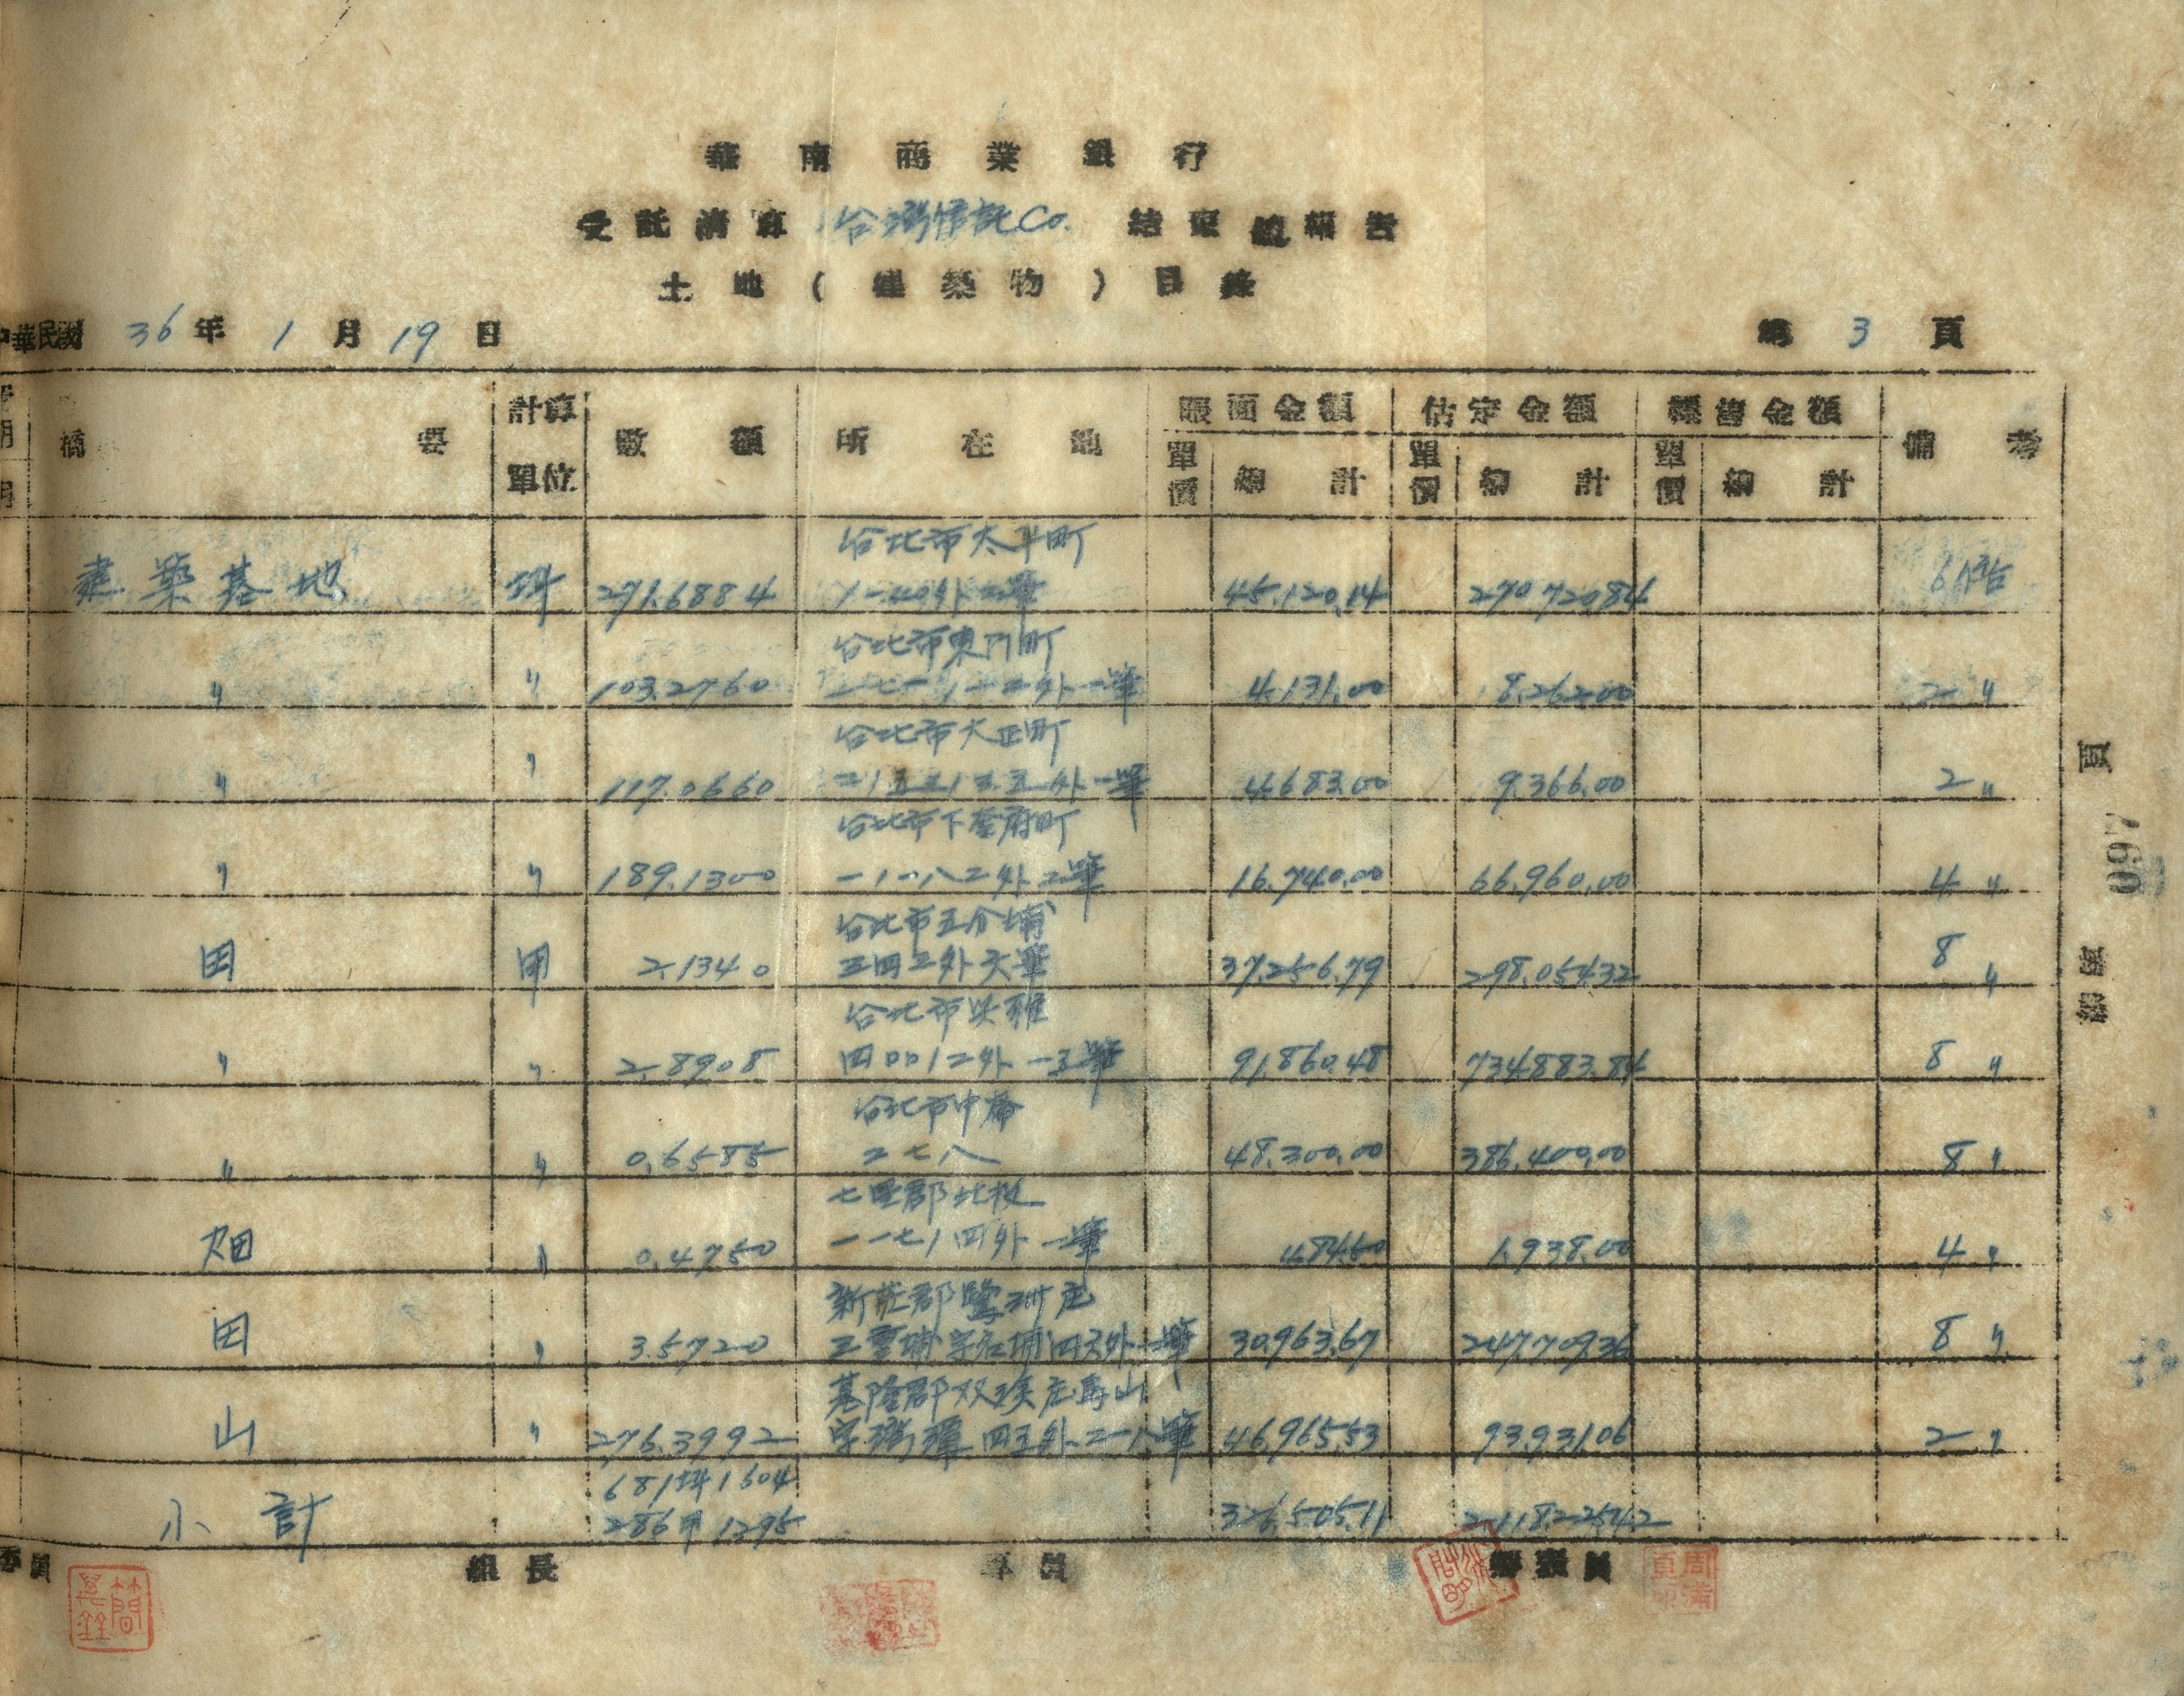 華南商業銀行
受託清算 台灣信託Co. 結束總報告
土地(建築物)目錄
中華民國 36 年 1 月 19 日 第 3 頁
摘要 計算單位 數額 所在地 賬面金額 估定金額 標售金額 備考
單價 總計 單價 總計 單價 總計
台北市太平町
建築基地 坪 271.6884 1-40外二筆 45,120.14 270,720.84 6倍
台北市東門町
〃 〃 103.2760 二七一/一二外一筆 4,131.00 8,262.00 2〃
台北市大正町
〃 〃 117.0660 二/五五/三五外一筆 4,683.00 9,366.00 2〃
台北市下奎府町
〃 〃 189.1300 一/一八二外二筆 16,740.00 66,960.00 4〃
台北市五分埔
田 甲 2.1340 三四二外六筆 37,256.79 298,054.32 8〃
台北市
〃 〃 2.8908 四四/二外一三筆 91,860.48 734,883.84 8〃
台北市中崙
〃 〃 0.6585 二七八 48,300.00 386,400.00 8〃
七星郡北投
畑 〃 0.4750 一一七/四外一筆 484.50 1,938.00 4〃
新莊郡鷺洲庄
田 〃 3.5720 三重埔 外一筆 30,963.67 247,709.36 8〃
基隆郡双溪庄
山 〃 276.3992 四五外二一八筆 46,965.53 93,931.06 2〃
681坪1604
小計 286甲1295 326,505.11 2,118,225.42
委員 組長 專員 清算員
總號 097 頁